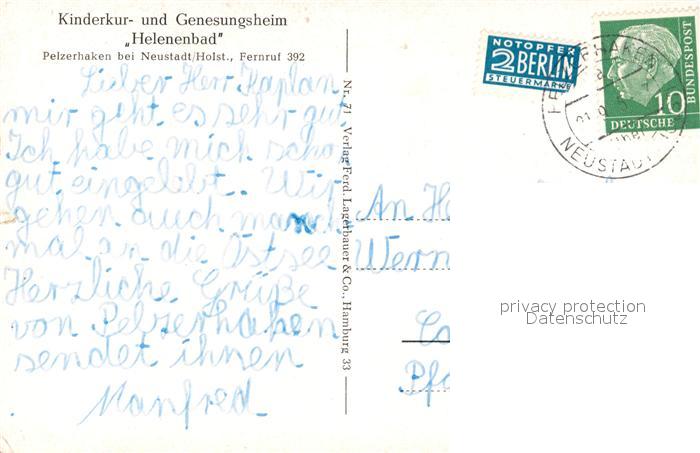 Kinderkur- und Genesungsheim
„Helenenbad"
Pelzerhaken bei Neustadt/Holst., Fernruf 392
Lieber Herr Kaplan
mir geht es sehr gut.
Ich habe mich schon
gut eingelebt. Wir
gehen auch manch
mal an die Ostsee
Herzliche Grüße
von Pelzerhaken
sendet ihnen
Manfred
Nr. 71 Verlag Ferd. Lagerbauer & Co., Hamburg 33
NOTOPFER
2 BERLIN
STEUERMARKE
10
DEUTSCHE
BUNDESPOST
NEUSTADT
An H
Wern
Pfa
privacy protection
Datenschutz